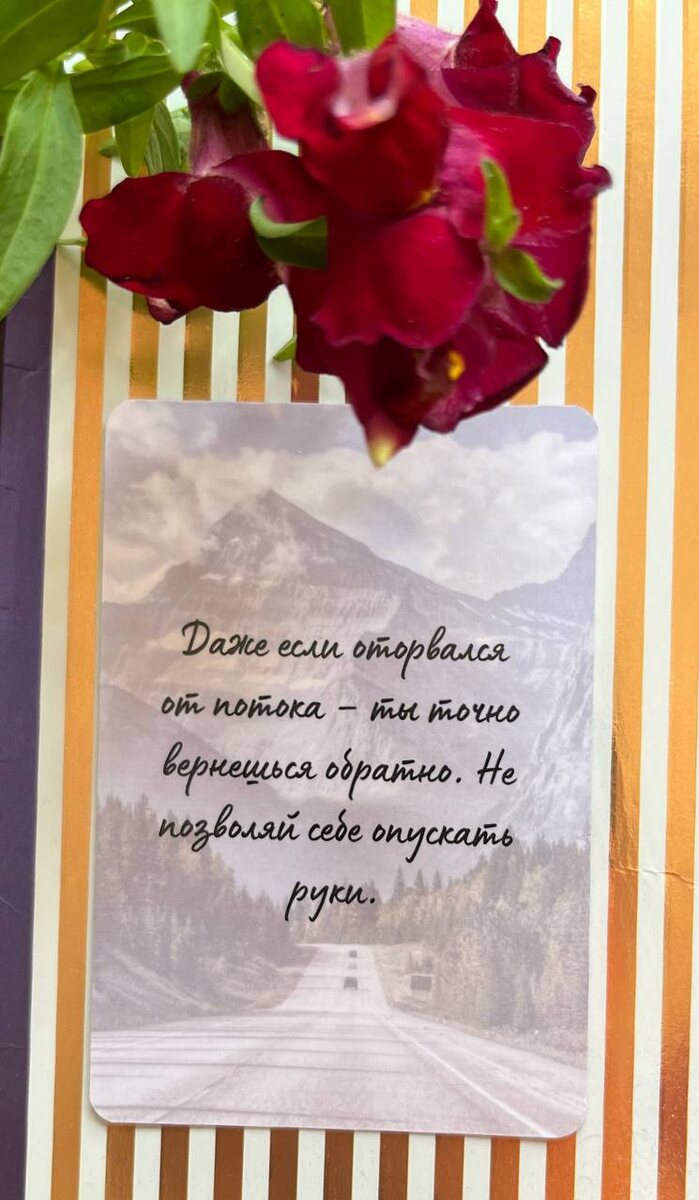 Даже если оторвался
от потока – ты точно
вернешься обратно. Не
позволяй себе опускать
руки.